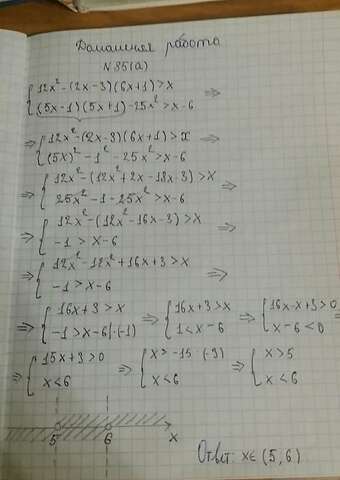 Домашняя работа
N 85(a)
{12x²-(2x-3)(6x+1)>x
{(5x-1)(5x+1)-25x²>x-6 ⇒
⇒ {12x²-(2x-3)(6x+1)>x ⇒
{(5x)²-1²-25x²>x-6
⇒ {12x²-(12x²+2x-18x-3)>x ⇒
{25x²-1-25x²>x-6
⇒ {12x²-(12x²-16x-3)>x ⇒
{-1>x-6
⇒ {12x²-12x²+16x+3>x ⇒
{-1>x-6
⇒ {16x+3>x ⇒ {16x+3>x ⇒ {16x-x+3>0 ⇒
{-1>x-6|:(-1) {1<x-6 {x-6<0
⇒ {15x+3>0 ⇒ {x>-15·(-3) ⇒ {x>5
{x<6 {x<6 {x<6
5 6 x
Ответ: x∈(5,6)